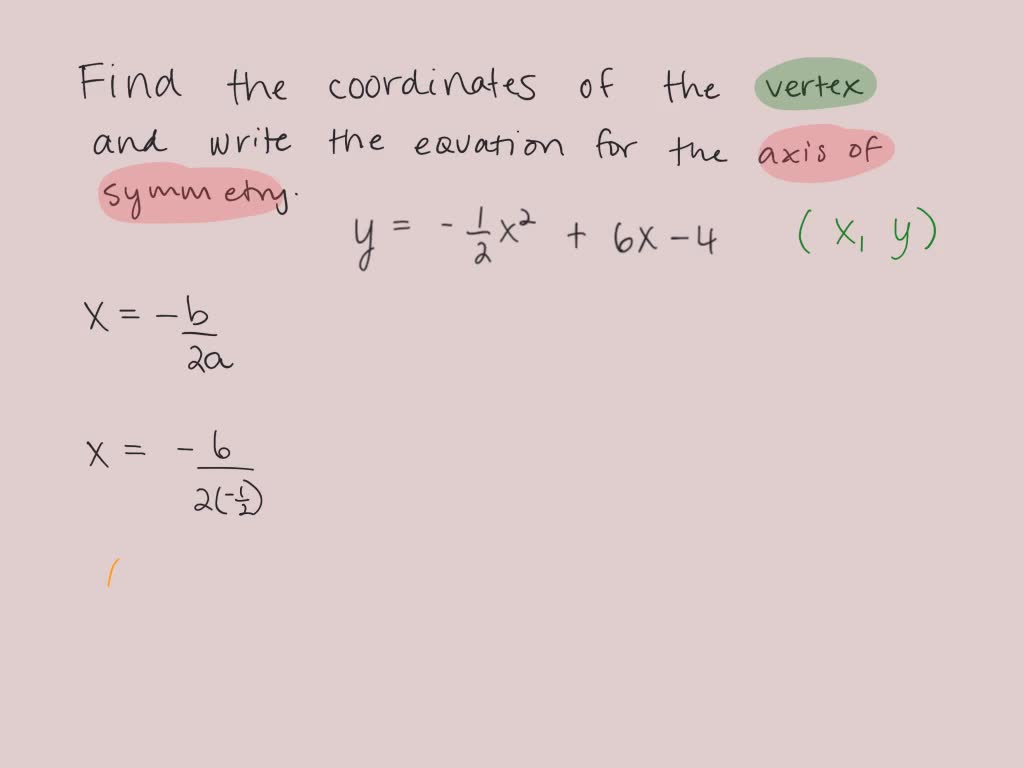 Find the coordinates of the vertex
and write the equation for the axis of
symmetry.
y = -1/2 x² + 6x - 4 (x, y)
x = -b/2a
x = -6/2(-1/2)
(